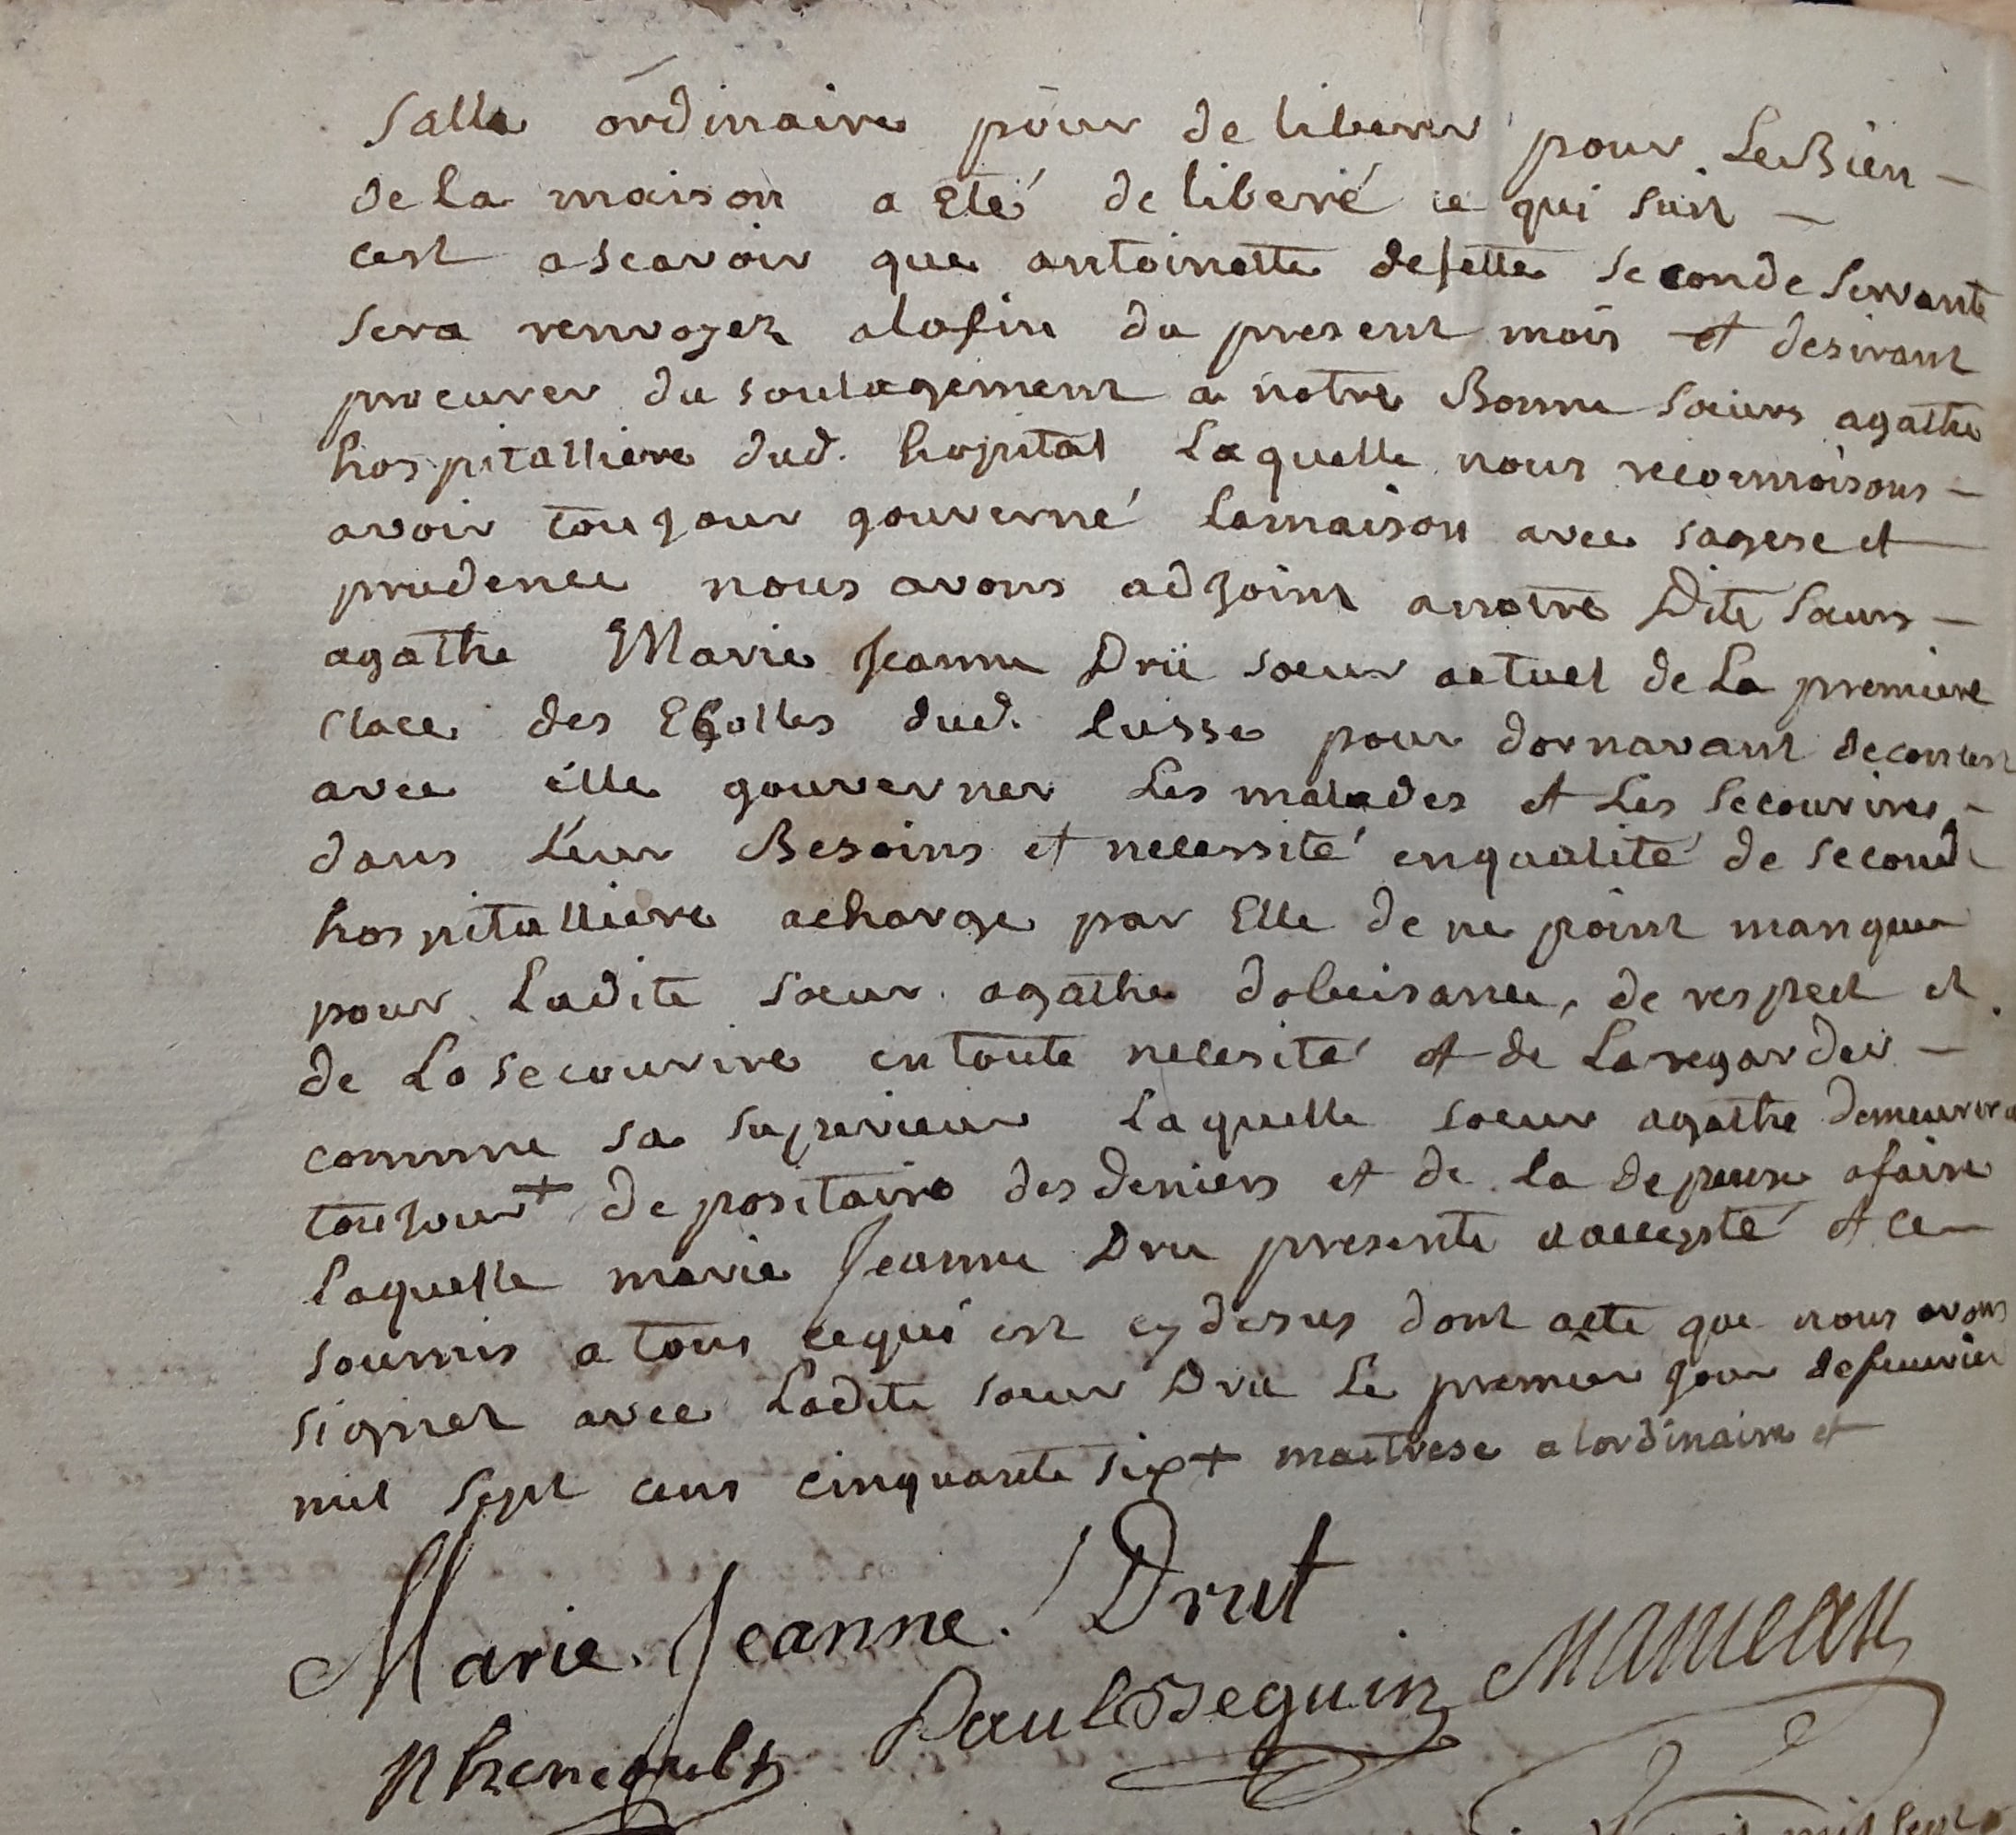 Salle ordinaire pour deliberer pour Le Bien -
de La maison a Eté deliberé ce qui suit -
cest ascavoir que antoinette defette seconde servante
sera renvoyez alafin du present mois et desirant
procurer du soulagement a notre Bonne Soeurs agathe
hospitalliere dud. hopital Laquelle nous reconnoisons -
avoir toujour gouverné lamaison avec sagese et
prudence nous avons adjoint anotre Dite Soeurs -
agathe Marie Jeanne Drü soeur actuel de La premiere
Clace des Ecolles dud. lusse pour dornavant deconcert
avec elle gouverner Les malades et Les Secourires -
dans Leur Besoins et necessité enqualité de second
hospitalliere acharge par Elle de ne point manquer
pour Ladite soeur agathe dobeisance, de respect et
de La secourire en toute necesité et de Laregarder -
comme sa superieur Laquelle soeur agathe demeurera
toujour + depositaire des deniers et de la depense afaire
laquelle marie Jeanne Dru presente a accepté et ce
soumis a tous cequi est cy desus dont acte que nous avons
signer avec Ladite soeur Dru Le premier jour de feuvrier
mil sept cens cinquante six + maitrese a lordinaire et
Marie. Jeanne. Drut
Paul Seguin
Nheneault